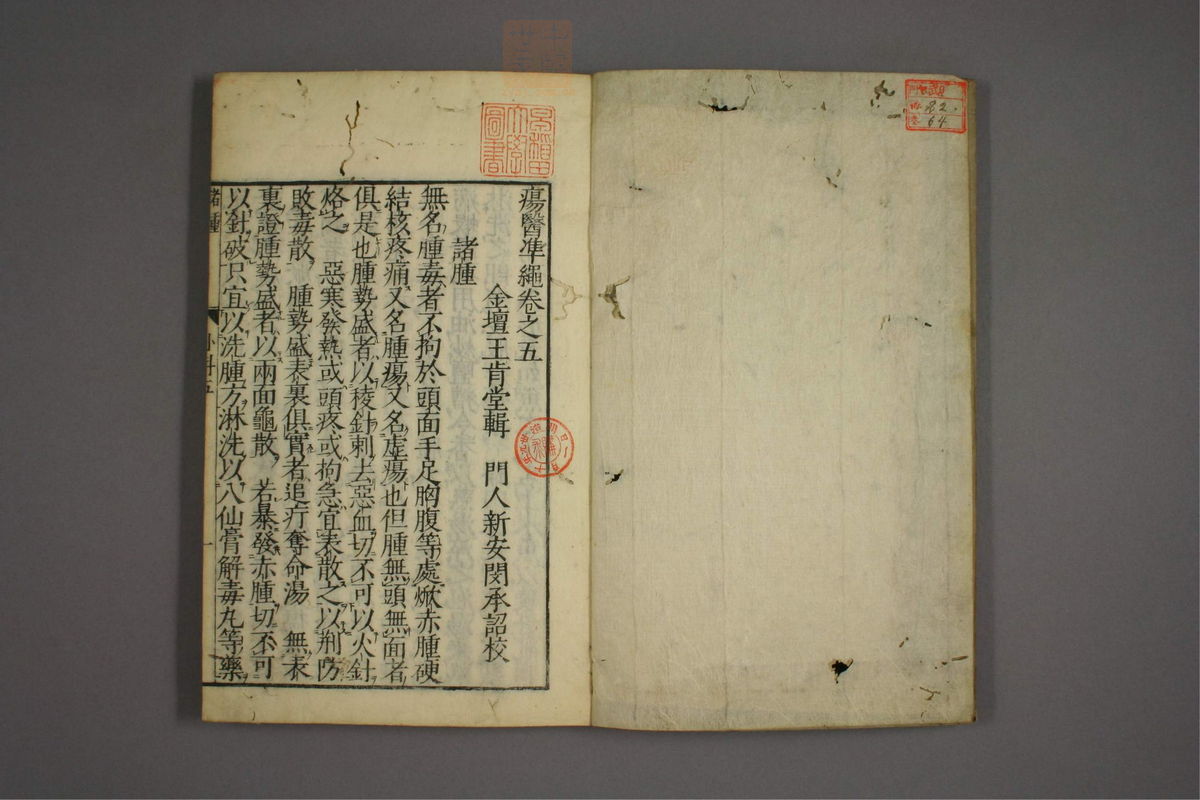 瘍醫準繩卷之五
金壇王肯堂輯 門人新安閔承詔校
諸腫
無名腫毒者不拘於頭面手足胸腹等處焮赤腫硬
結核疼痛又名腫瘍又名虛瘍也但腫無頭無面者
俱是也腫勢盛者以稜針刺去惡血切不可以火針
烙之 惡寒發熱或頭疼或拘急宜表散之以荆防
敗毒散 腫勢盛表裏俱實者追疔奪命湯 無表
裏證腫勢盛者以兩面龜散 若暴發赤腫切不可
以針破只宜以洗腫方淋洗以八仙膏解毒丸等藥
諸腫 一
早稻田大學圖書
82
64